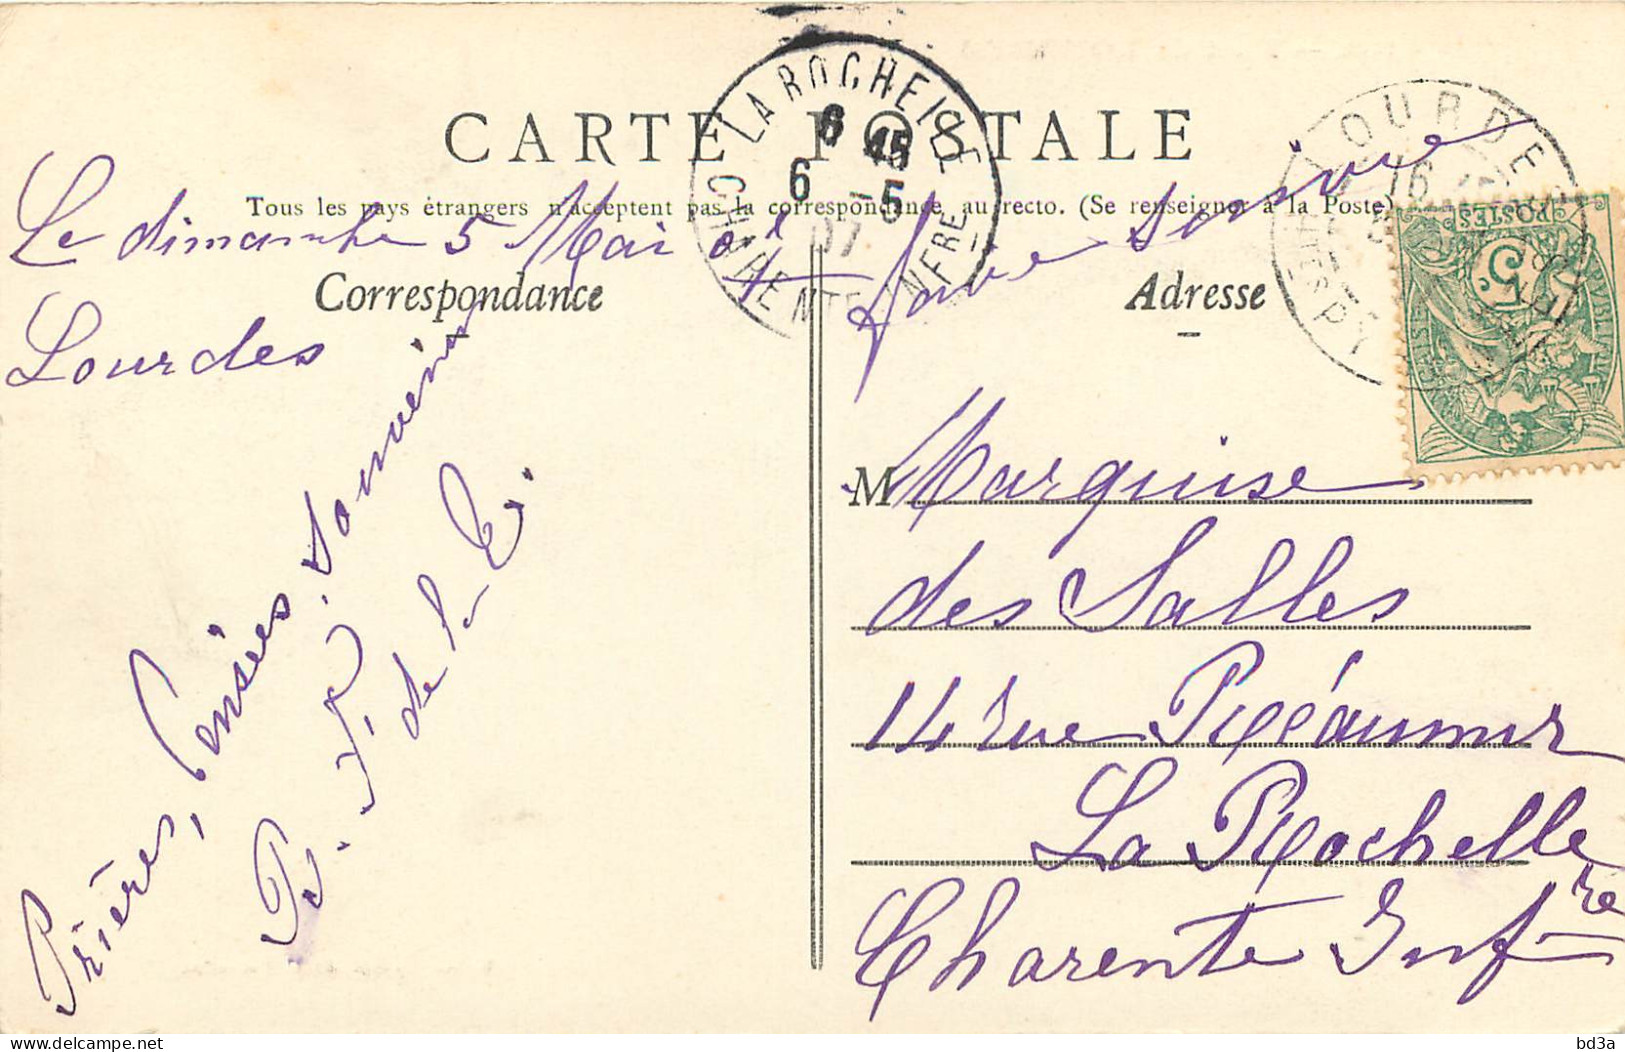 CARTE POSTALE
Tous les pays étrangers n'acceptent pas la correspondance au recto. (Se renseigner à la Poste)
Correspondance
Adresse
LA ROCHELLE
6 45
6 -5
07
CHARENTE INFRE
LOURDES
16
POSTES
5
Le dimanche 5 Mai 07
Lourdes
Prières, Pensées, Souvenirs
de la
faire suivre
M Marquise
des Salles
14 rue Réaumur
La Rochelle
Charente Infre
delcampe.net
bd3a